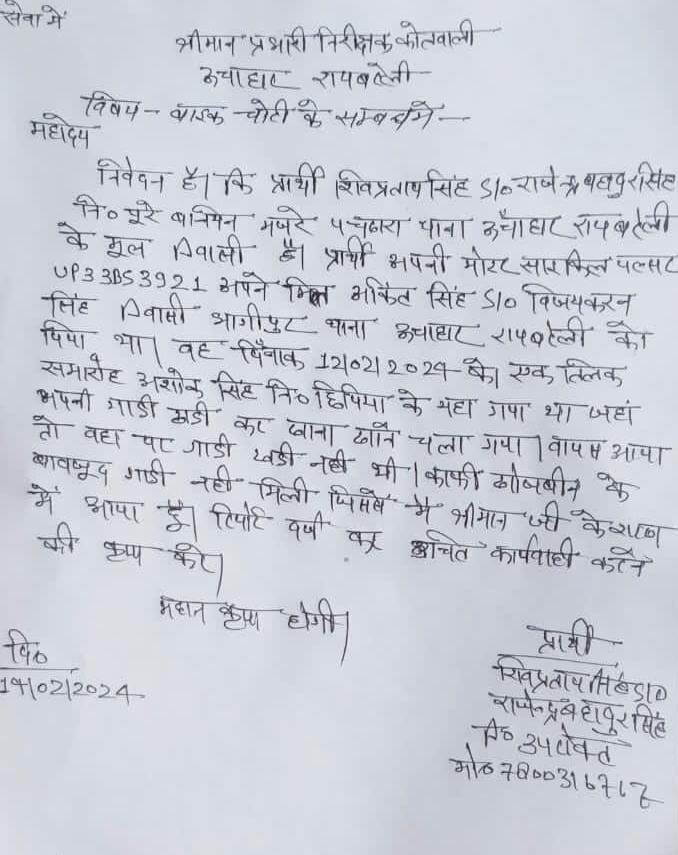 सेवा में
श्रीमान प्रभारी निरीक्षक कोतवाली
ऊचाहार रायबरेली
विषय - बाइक चोरी के सम्बन्ध में -
महोदय
निवेदन है। कि प्रार्थी शिवप्रताप सिंह S/o राजेन्द्र बहादुर सिंह
नि० पूरे बानियन मजरे पचखरा थाना ऊचाहार रायबरेली
के मूल निवासी है। प्रार्थी अपनी मोटर साइकिल पल्सर
UP33BS3921 अपने मित्र अंकित सिंह S/o विजयकरन
सिंह निवासी थाना ऊचाहार रायबरेली को
दिया था। वह दिनांक 12/02/2024 को एक तिलक
समारोह अशोक सिंह नि० छिपिया के यहा गया था जहां
अपनी गाडी खडी कर खाना खाने चला गया। वापस आया
तो वहा पर गाडी खडी नही थी। काफी खोजबीन के
बावजूद गाडी नही मिली जिससे मै श्रीमान जी के शरण
में आया हूं। रिपोर्ट दर्ज कर उचित कार्यवाही करने
की कृपा करे।
महान कृपा होगी।
दि०
14/02/2024
प्रार्थी
शिवप्रताप सिंह S/O
राजेन्द्र बहादुर सिंह
नि० उपरोक्त
मो० 7800316717